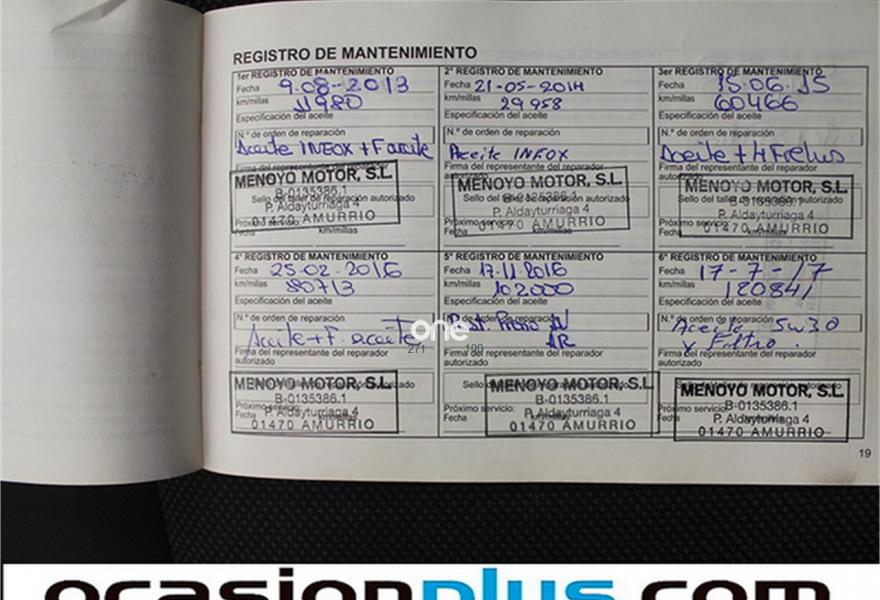 REGISTRO DE MANTENIMIENTO
1er REGISTRO DE MANTENIMIENTO
Fecha 9-08-2013
km/millas 11980
Especificación del aceite
N.º de orden de reparación
Aceite INEOX + F aceite
Firma del representante del reparador
autorizado
MENOYO MOTOR, S.L.
B-0135386.1
Sello del taller de reparación autorizado
P. Aldayturriaga 4
Próximo servicio:
01470 AMURRIO
Fecha km/millas
2º REGISTRO DE MANTENIMIENTO
Fecha 21-05-2014
km/millas 29958
Especificación del aceite
N.º de orden de reparación
Aceite INEOX
Firma del representante del reparador
autorizado
MENOYO MOTOR, S.L.
B-0135386.1
Sello del taller de reparación autorizado
P. Aldayturriaga 4
Próximo servicio:
01470 AMURRIO
Fecha km/millas
3er REGISTRO DE MANTENIMIENTO
Fecha 15.06.15
km/millas 60466
Especificación del aceite
N.º de orden de reparación
Aceite +
Firma del representante del reparador
autorizado
MENOYO MOTOR, S.L.
B-0135386.1
Sello del taller de reparación autorizado
P. Aldayturriaga 4
Próximo servicio:
01470 AMURRIO
Fecha km/millas
4º REGISTRO DE MANTENIMIENTO
Fecha 25-02-2016
km/millas 80713
Especificación del aceite
N.º de orden de reparación
Aceite + F. aceite
Firma del representante del reparador
autorizado
MENOYO MOTOR, S.L.
B-0135386.1
Próximo servicio:
P. Aldayturriaga 4
Fecha
01470 AMURRIO
5º REGISTRO DE MANTENIMIENTO
Fecha 17.11.2016
km/millas 102000
Especificación del aceite
N.º de orden de reparación
AR
Firma del representante del reparador
autorizado
MENOYO MOTOR, S.L.
B-0135386.1
Próximo servicio:
P. Aldayturriaga 4
Fecha km/millas
01470 AMURRIO
6º REGISTRO DE MANTENIMIENTO
Fecha 17-7-17
km/millas 120841
Especificación del aceite
N.º de orden de reparación
Aceite 5w30
y Filtro.
Firma del representante del reparador
autorizado
MENOYO MOTOR, S.L.
B-0135386.1
Próximo servicio:
P. Aldayturriaga 4
Fecha
01470 AMURRIO
one
271 100
19
ocasionplus.com